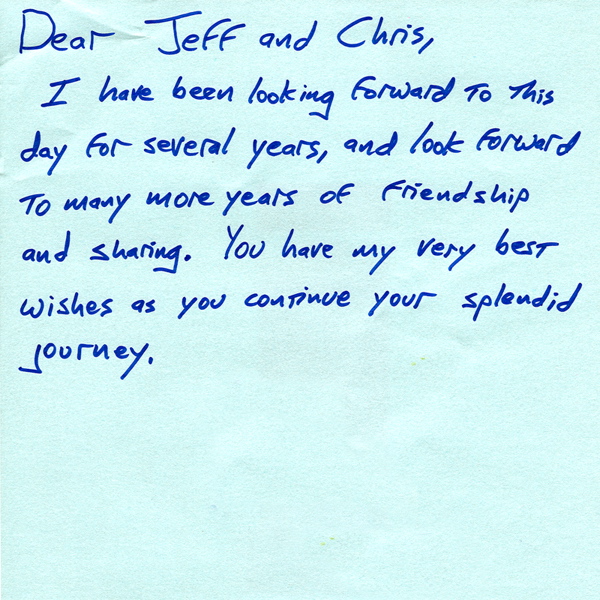 Dear Jeff and Chris,
I have been looking forward to this
day for several years, and look forward
to many more years of friendship
and sharing. You have my very best
wishes as you continue your splendid
journey.